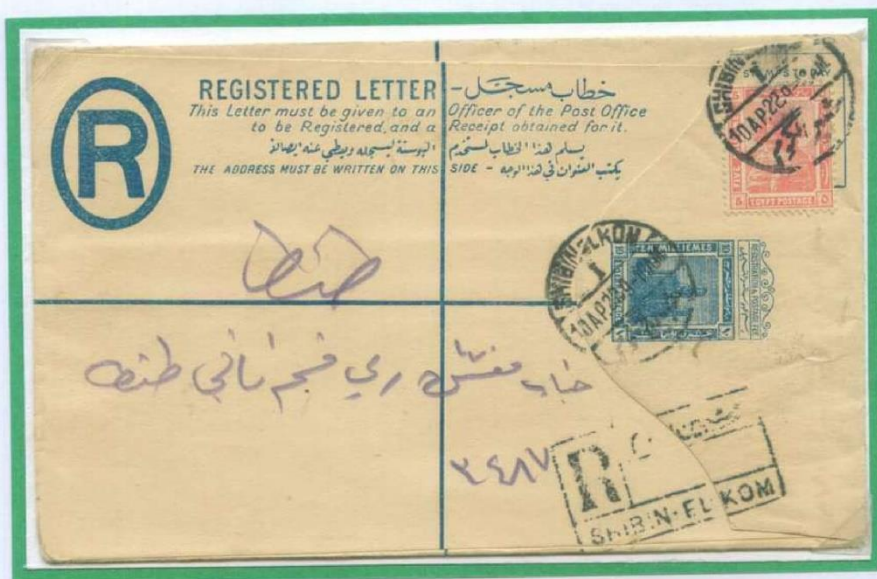 REGISTERED LETTER - خطاب مسجل
This Letter must be given to an Officer of the Post Office
to be Registered, and a Receipt obtained for it.
يسلم هذا الخطاب لمستخدم البوستة ليسجله ويعطي عنه ايصالاً
THE ADDRESS MUST BE WRITTEN ON THIS SIDE - يكتب العنوان في هذا الوجه
R
STAMPS TO PAY
SHIBIN
10 AP 22
5 5
EGYPT POSTAGE
SHIBIN ELKOM
1
10 AP 22
TEN MILLIEMES
REGISTRATION & POSTAGE FEE
طنطا
جناب مفتش ري قسم ثاني طنطا
٣٤٨٧
R
SHIBIN-EL-KOM